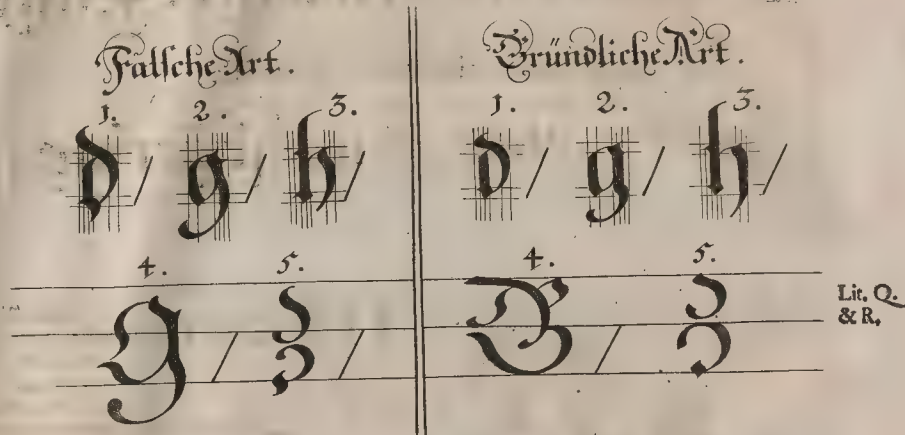 Falsche Art.
1. 2. 3.
d / g / h /
4. 5.
G / /
Gründliche Art.
1. 2. 3.
d / g / h /
4. 5.
G /
Lit. Q.
& R.